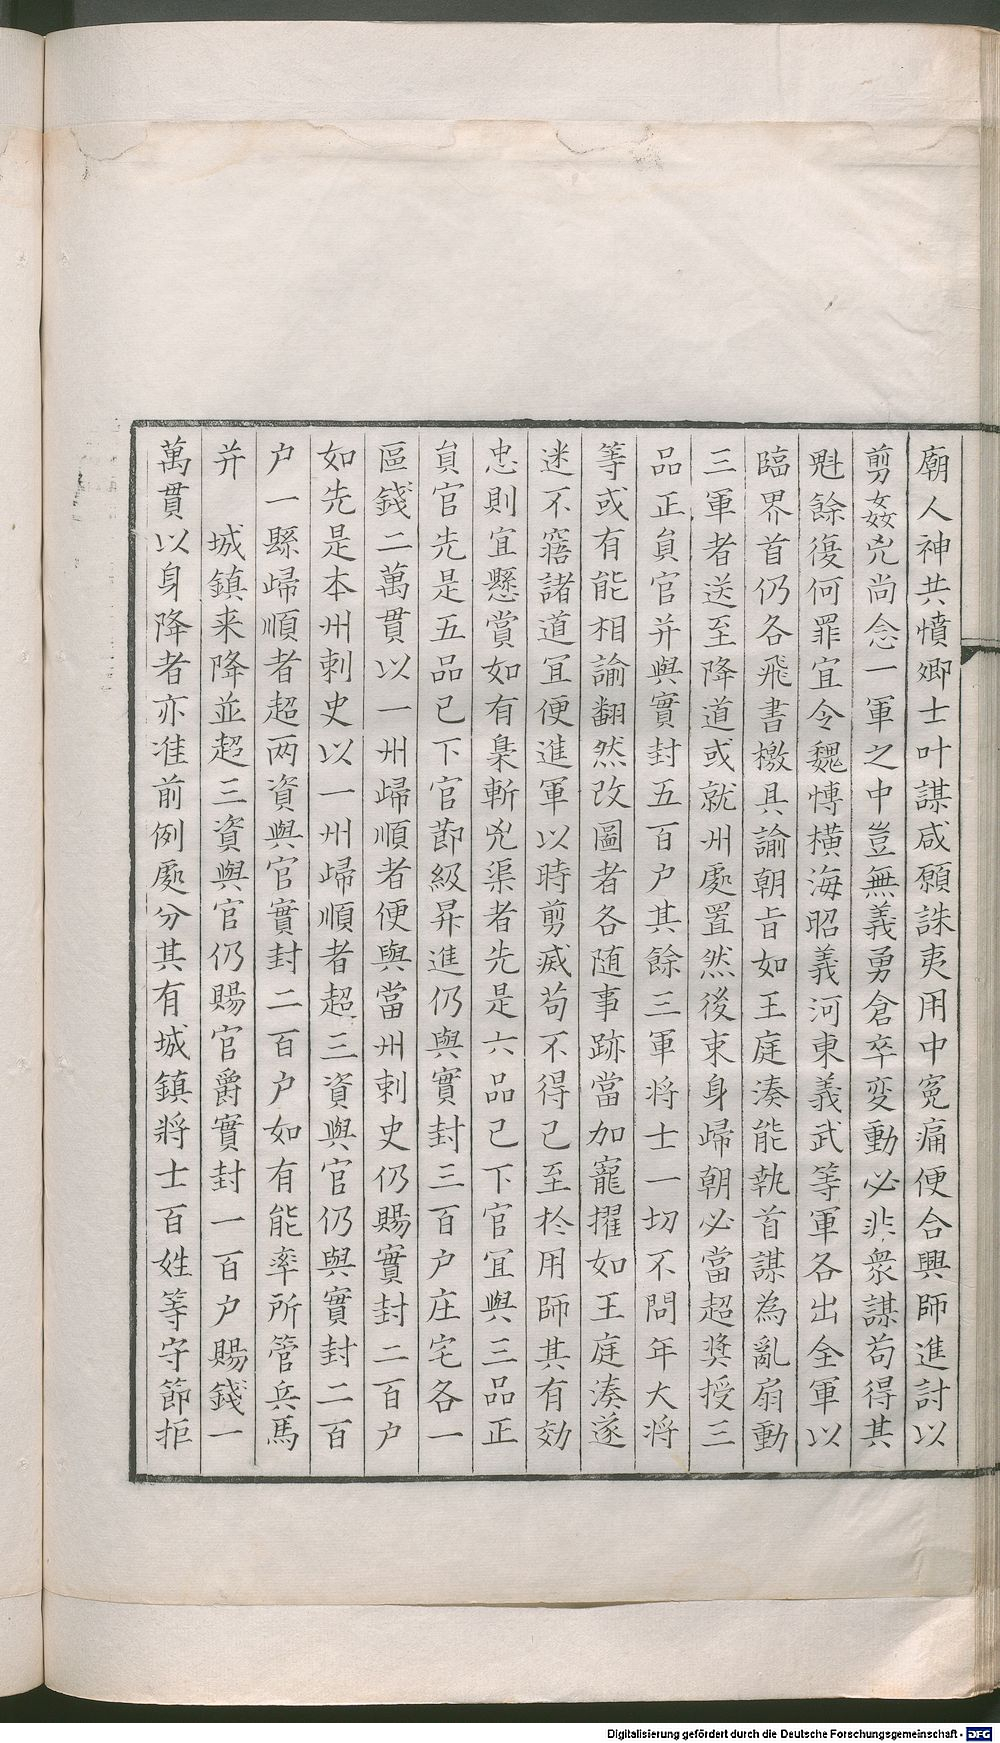 廟人神共憤卿士叶謀咸願誅夷用申冤痛便合興師進討以
剪姦兇尚念一軍之中豈無義勇倉卒変動必非衆謀苟得其
魁餘復何罪宜令魏愽橫海昭義河東義武等軍各出全軍以
臨界首仍各飛書檄具諭朝旨如王庭湊能執首謀為亂扇動
三軍者送至降道或就州處置然後束身歸朝必當超奬授三
品正貟官并與實封五百户其餘三軍将士一切不問年大将
等或有能相諭翻然改圖者各随事跡當加寵擢如王庭湊遂
迷不寤諸道冝便進軍以時剪滅苟不得已至於用師其有効
忠則宜懸賞如有梟斬兇渠者先是六品已下官冝與三品正
貟官先是五品已下官節級昇進仍與實封三百户庄宅各一
區錢二萬貫以一州歸順者便與當州刺史仍賜實封二百户
如先是本州刺史以一州歸順者超三資與官仍與實封二百
户一縣歸順者超两資與官實封二百户如有能率所管兵馬
并　城鎮来降並超三資與官仍賜官爵實封一百户賜錢一
萬貫以身降者亦准前例處分其有城鎮將士百姓等守節拒
Digitalisierung gefördert durch die Deutsche Forschungsgemeinschaft - DFG